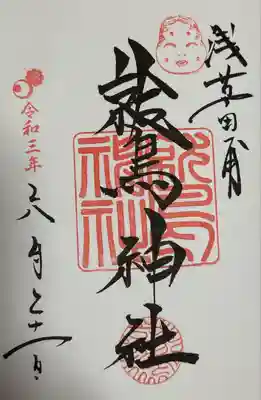 浅草田甫
鷲神社
令和三年
六月二十一日
鷲神社